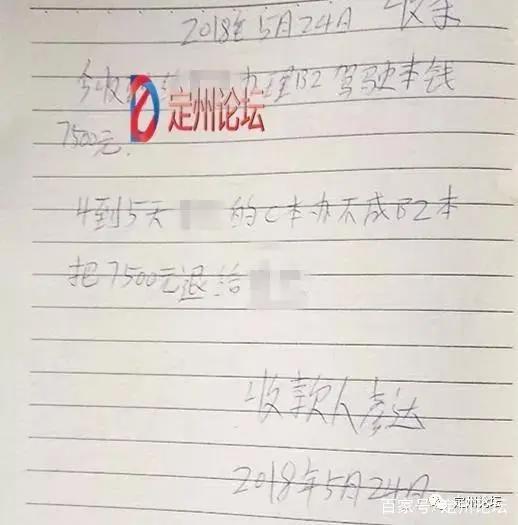 2018年5月24日 收条
今收 办理B2驾驶本钱
定州论坛
7500元.
4到5天 的C本办不成B2本
把7500元退给
收款人彦达
2018年5月24日
定州论坛
百家号/定州论坛